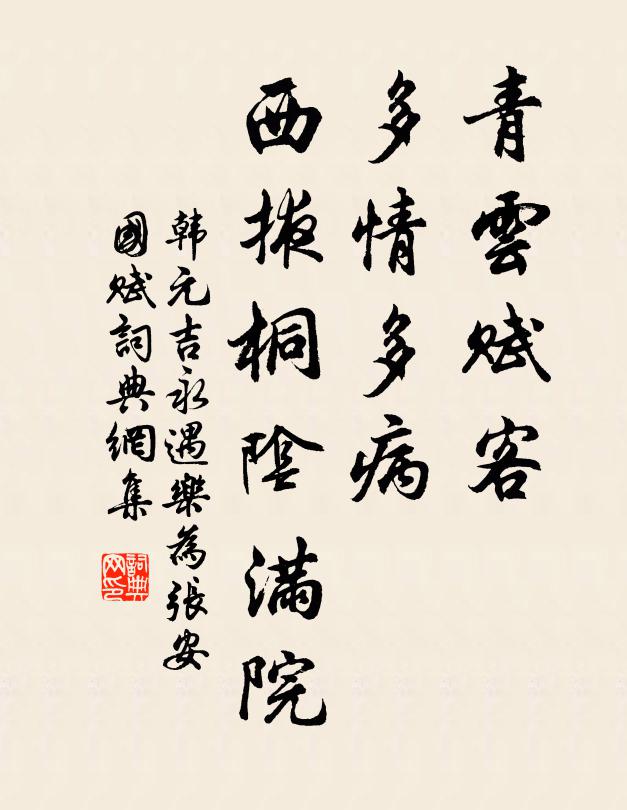 青雲賦客
多情多病
西掖桐陰滿院
韩元吉永遇樂為張安
國賦詞典網集
詞典
网印